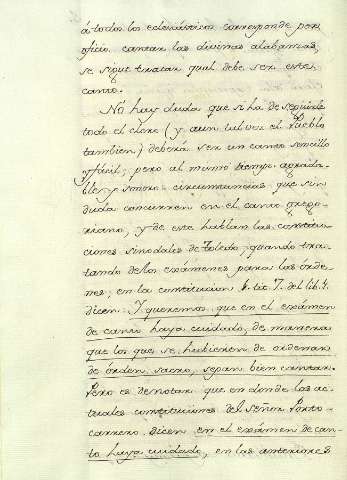 á todos los eclesiásticos corresponde por
oficio cantar las divinas alabanzas,
se sigue tratar qual debe ser este
canto.
No hay duda que si ha de seguirle
todo el clero (y aun tal vez el Pueblo
tambien) deberá ser un canto sencillo
y fácil; pero al mismo tiempo agrada-
ble y sonoro: circunstancias que sin
duda concurren en el canto grego-
riano, y de este hablan las constitu-
ciones sinodales de Toledo, quando tra-
tando de los exámenes para las órde-
nes, en la constitucion 4. tit. 7. del lib. 1.
dicen: Y queremos que en el exámen
de canto haya cuidado, de manera
que los que se hubieren de ordenar
de órden sacro, sepan bien cantar.
Pero es de notar que en donde las ac-
tuales constituciones del señor Porto-
carrero dicen en el exámen de can-
to haya cuidado, en las anteriores